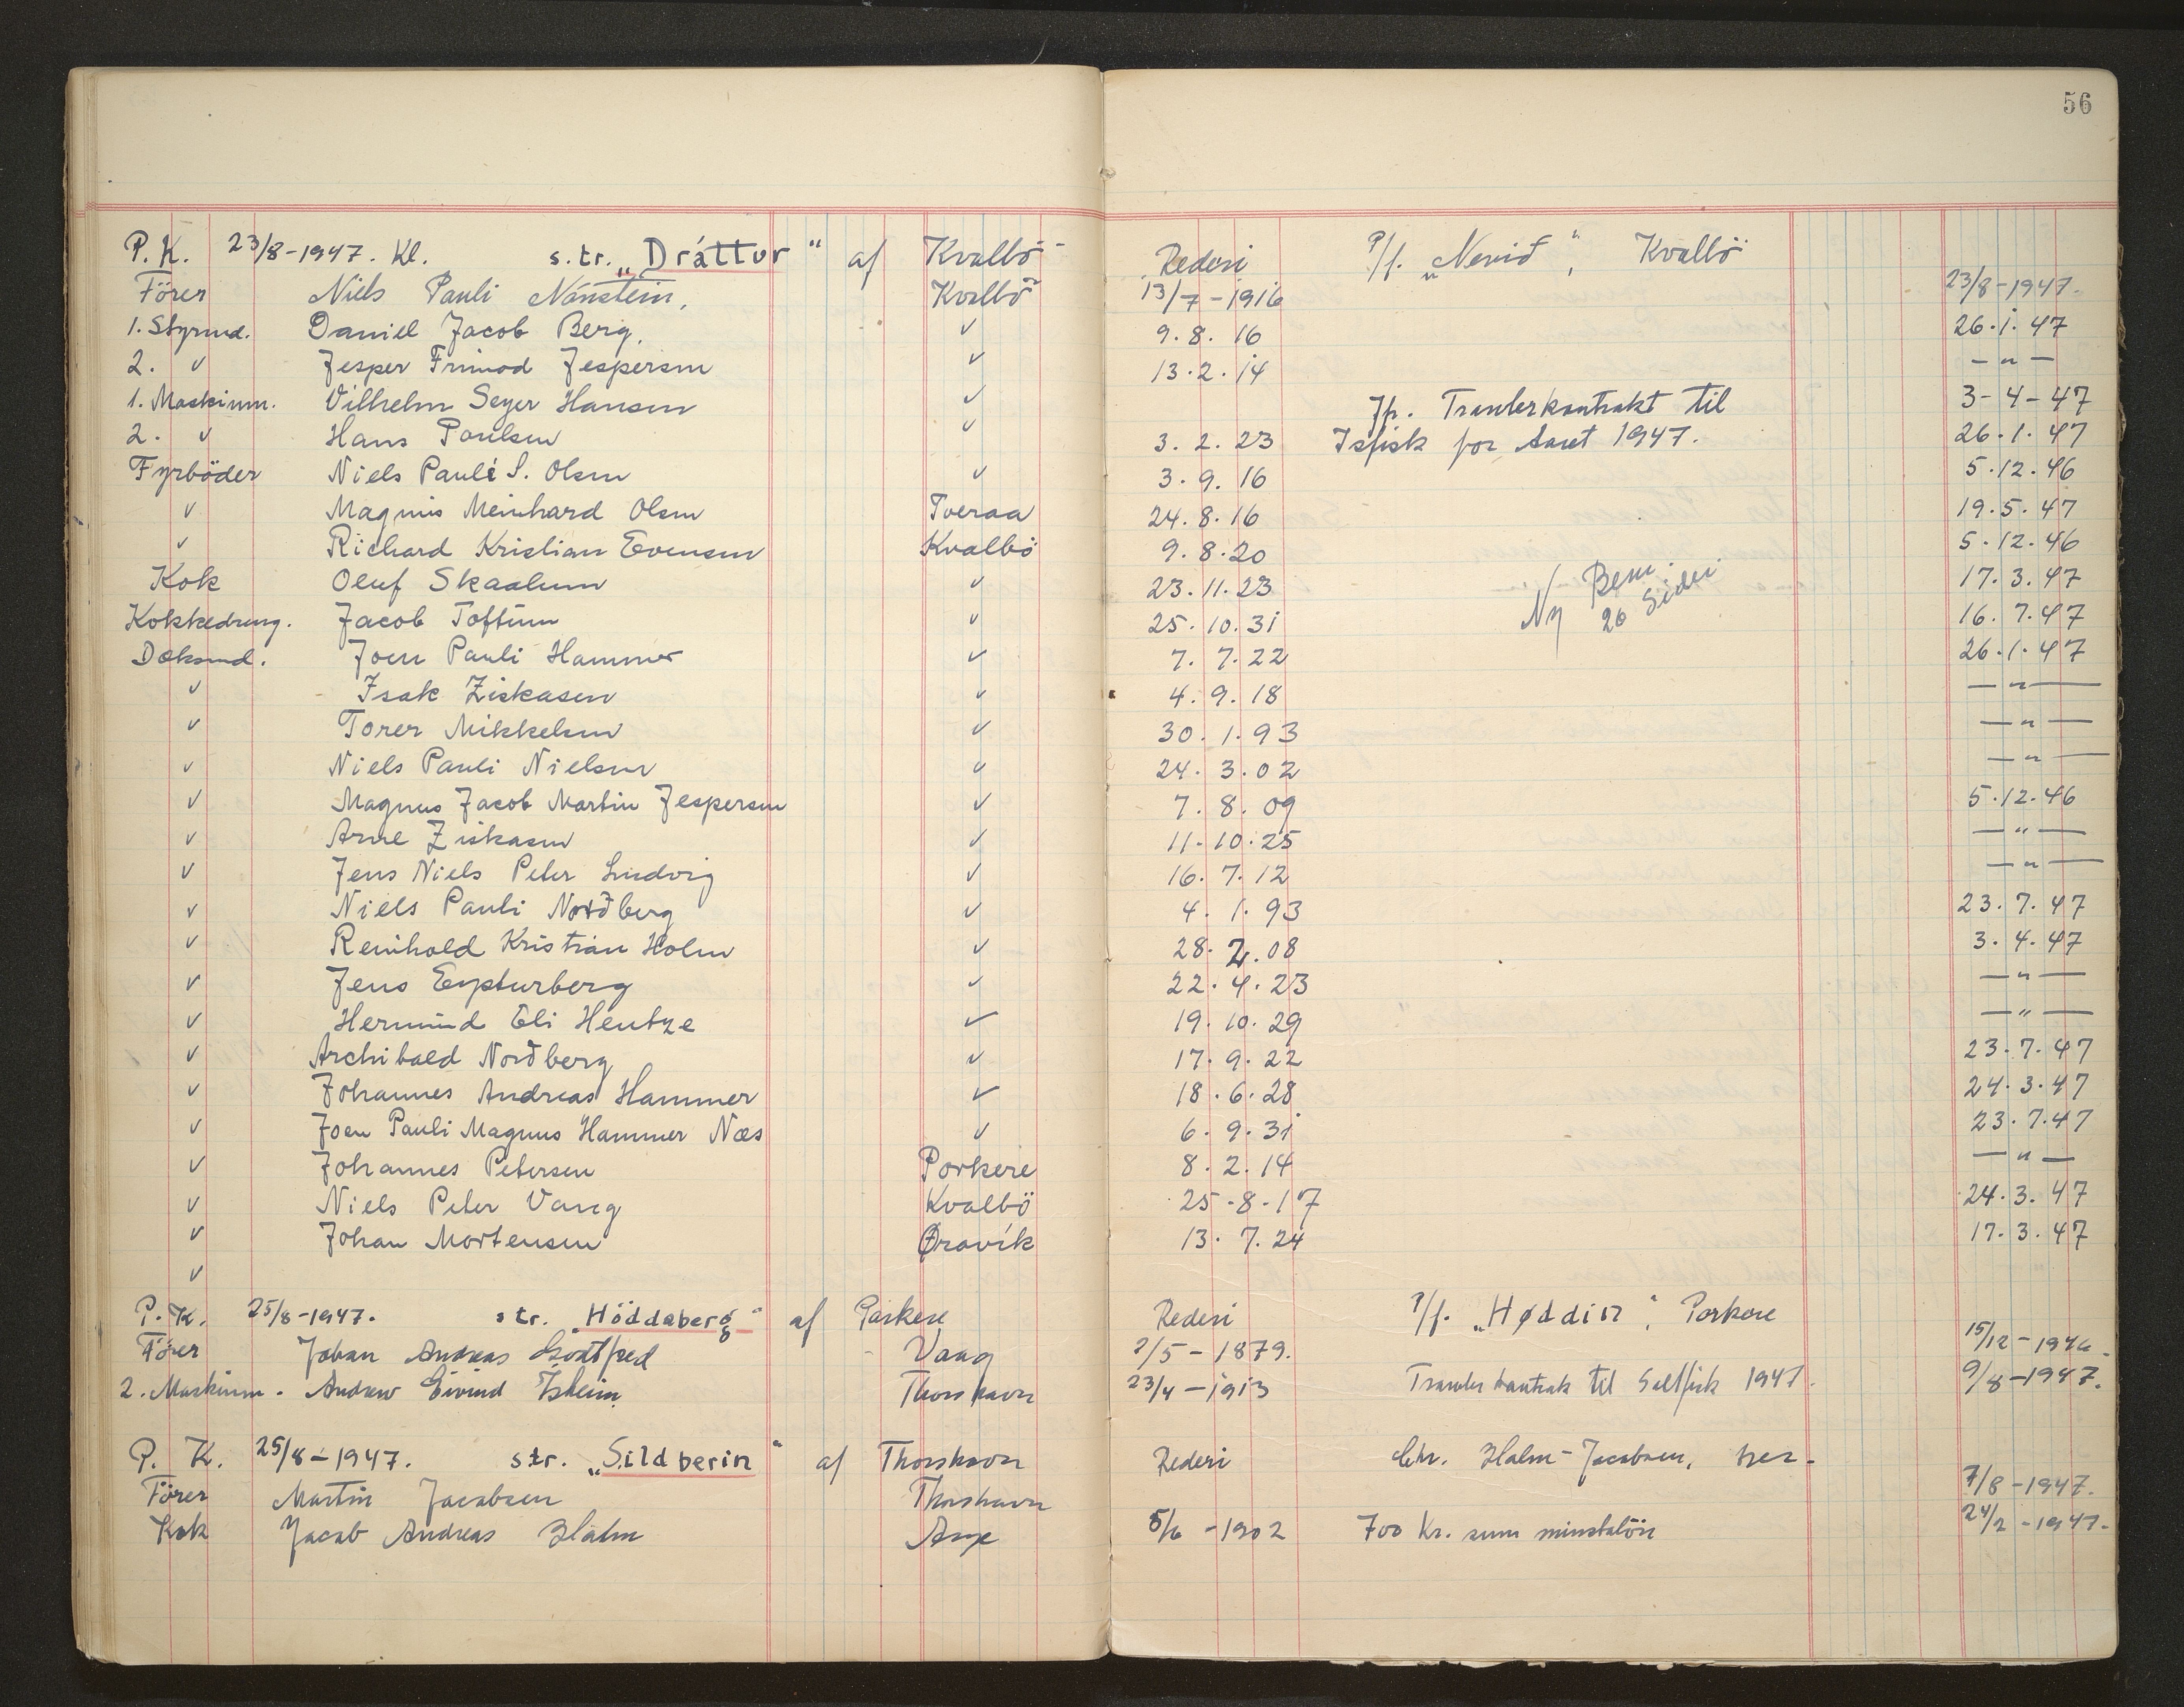 56
P. K. 23/8-1947. Kl. s.tr. „Dráttur“ af Kvalbö Rederi P/f. „Nevid“, Kvalbö
Förer Niels Pauli Nónstein, Kvalbö 13/7-1916 23/8-1947.
1. Styrmd. Daniel Jacob Berg. ✓ 9. 8. 16 26.1. 47
2. ✓ Jesper Frimod Jespersen ✓ 13.2.14 —"—
1. Maskinm. Vilhelm Seyer Hansen ✓ Jfr. Trawlerkontrakt til 3-4-47
2. ✓ Hans Poulsen ✓ 3. 2. 23 Isfisk for Aaret 1947. 26.1. 47
Fyrböder Niels Pauli S. Olsen ✓ 3. 9. 16 5.12.46
✓ Magnus Meinhard Olsen Tveraa 24. 8. 16 19.5.47
✓ Richard Kristian Evensen Kvalbö 9. 8.20 5.12.46
Kok Oluf Skaalum ✓ 23.11.23 Ny Bem. 17. 3. 47
Kokkedreng. Jacob Toftum ✓ 25. 10. 31 20 Sider 16. 7. 47
Dæksmd. Joen Pauli Hammer ✓ 7. 7. 22 26.1.47
✓ Isak Ziskasen ✓ 4. 9. 18 —"—
✓ Torer Mikkelsen ✓ 30. 1. 93 —"—
✓ Niels Pauli Nielsen ✓ 24. 3. 02 —"—
✓ Magnus Jacob Martin Jespersen ✓ 7. 8. 09 5.12.46
✓ Arne Ziskasen ✓ 11-10.25 —"—
✓ Jens Niels Peter Lindvig ✓ 16. 7. 12 —"—
✓ Niels Pauli Nordberg ✓ 4. 1. 93 23. 7. 47
✓ Reinhold Kristian Holm ✓ 28. 2. 08 3. 4. 47
✓ Jens Eysturberg ✓ 22. 4. 23 —"—
✓ Hermund Eli Hentze ✓ 19. 10. 29 —"—
✓ Archibald Nordberg ✓ 17. 9. 22 23.7.47
✓ Johannes Andreas Hammer ✓ 18. 6. 28 24.3.47
✓ Joen Pauli Magnus Hammer Næs ✓ 6. 9. 31 23.7.47
✓ Johannes Petersen Porkere 8. 2. 14 —"—
✓ Niels Peter Vang Kvalbö 25-8-17 24.3. 47
✓ Johan Mortensen Øravík 13. 7. 24 17.3.47
✓
P. K. 25/8-1947. str. „Höddaberg“ af Porkere Rederi P/f. „Høddin“, Porkere
Förer Johan Andreas Godtfred Vaag 2/5-1879. 15/12-1946.
2. Maskinm. Andrew Eivind Isheim Thorshavn 23/4-1913 Trawlerkontrak til Saltfisk 1947. 9/8-1947.
P. K. 25/8-1947. str. „Sildberin“ af Thorshavn Rederi Chr. Holm-Jacobsen, her.
Förer Martin Jacobsen Thorshavn 7/8-1947.
Kok Jacob Andreas Holm 5/6-1902 700 Kr. sum minstalön 24/2-1947.